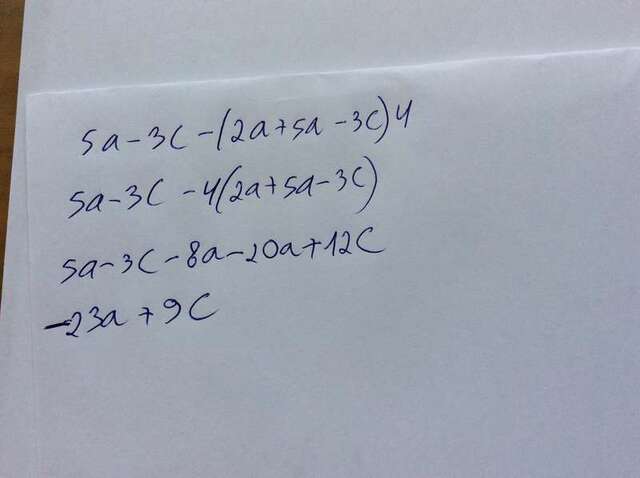 5a-3c-(2a+5a-3c)4
5a-3c-4(2a+5a-3c)
5a-3c-8a-20a+12c
-23a+9c